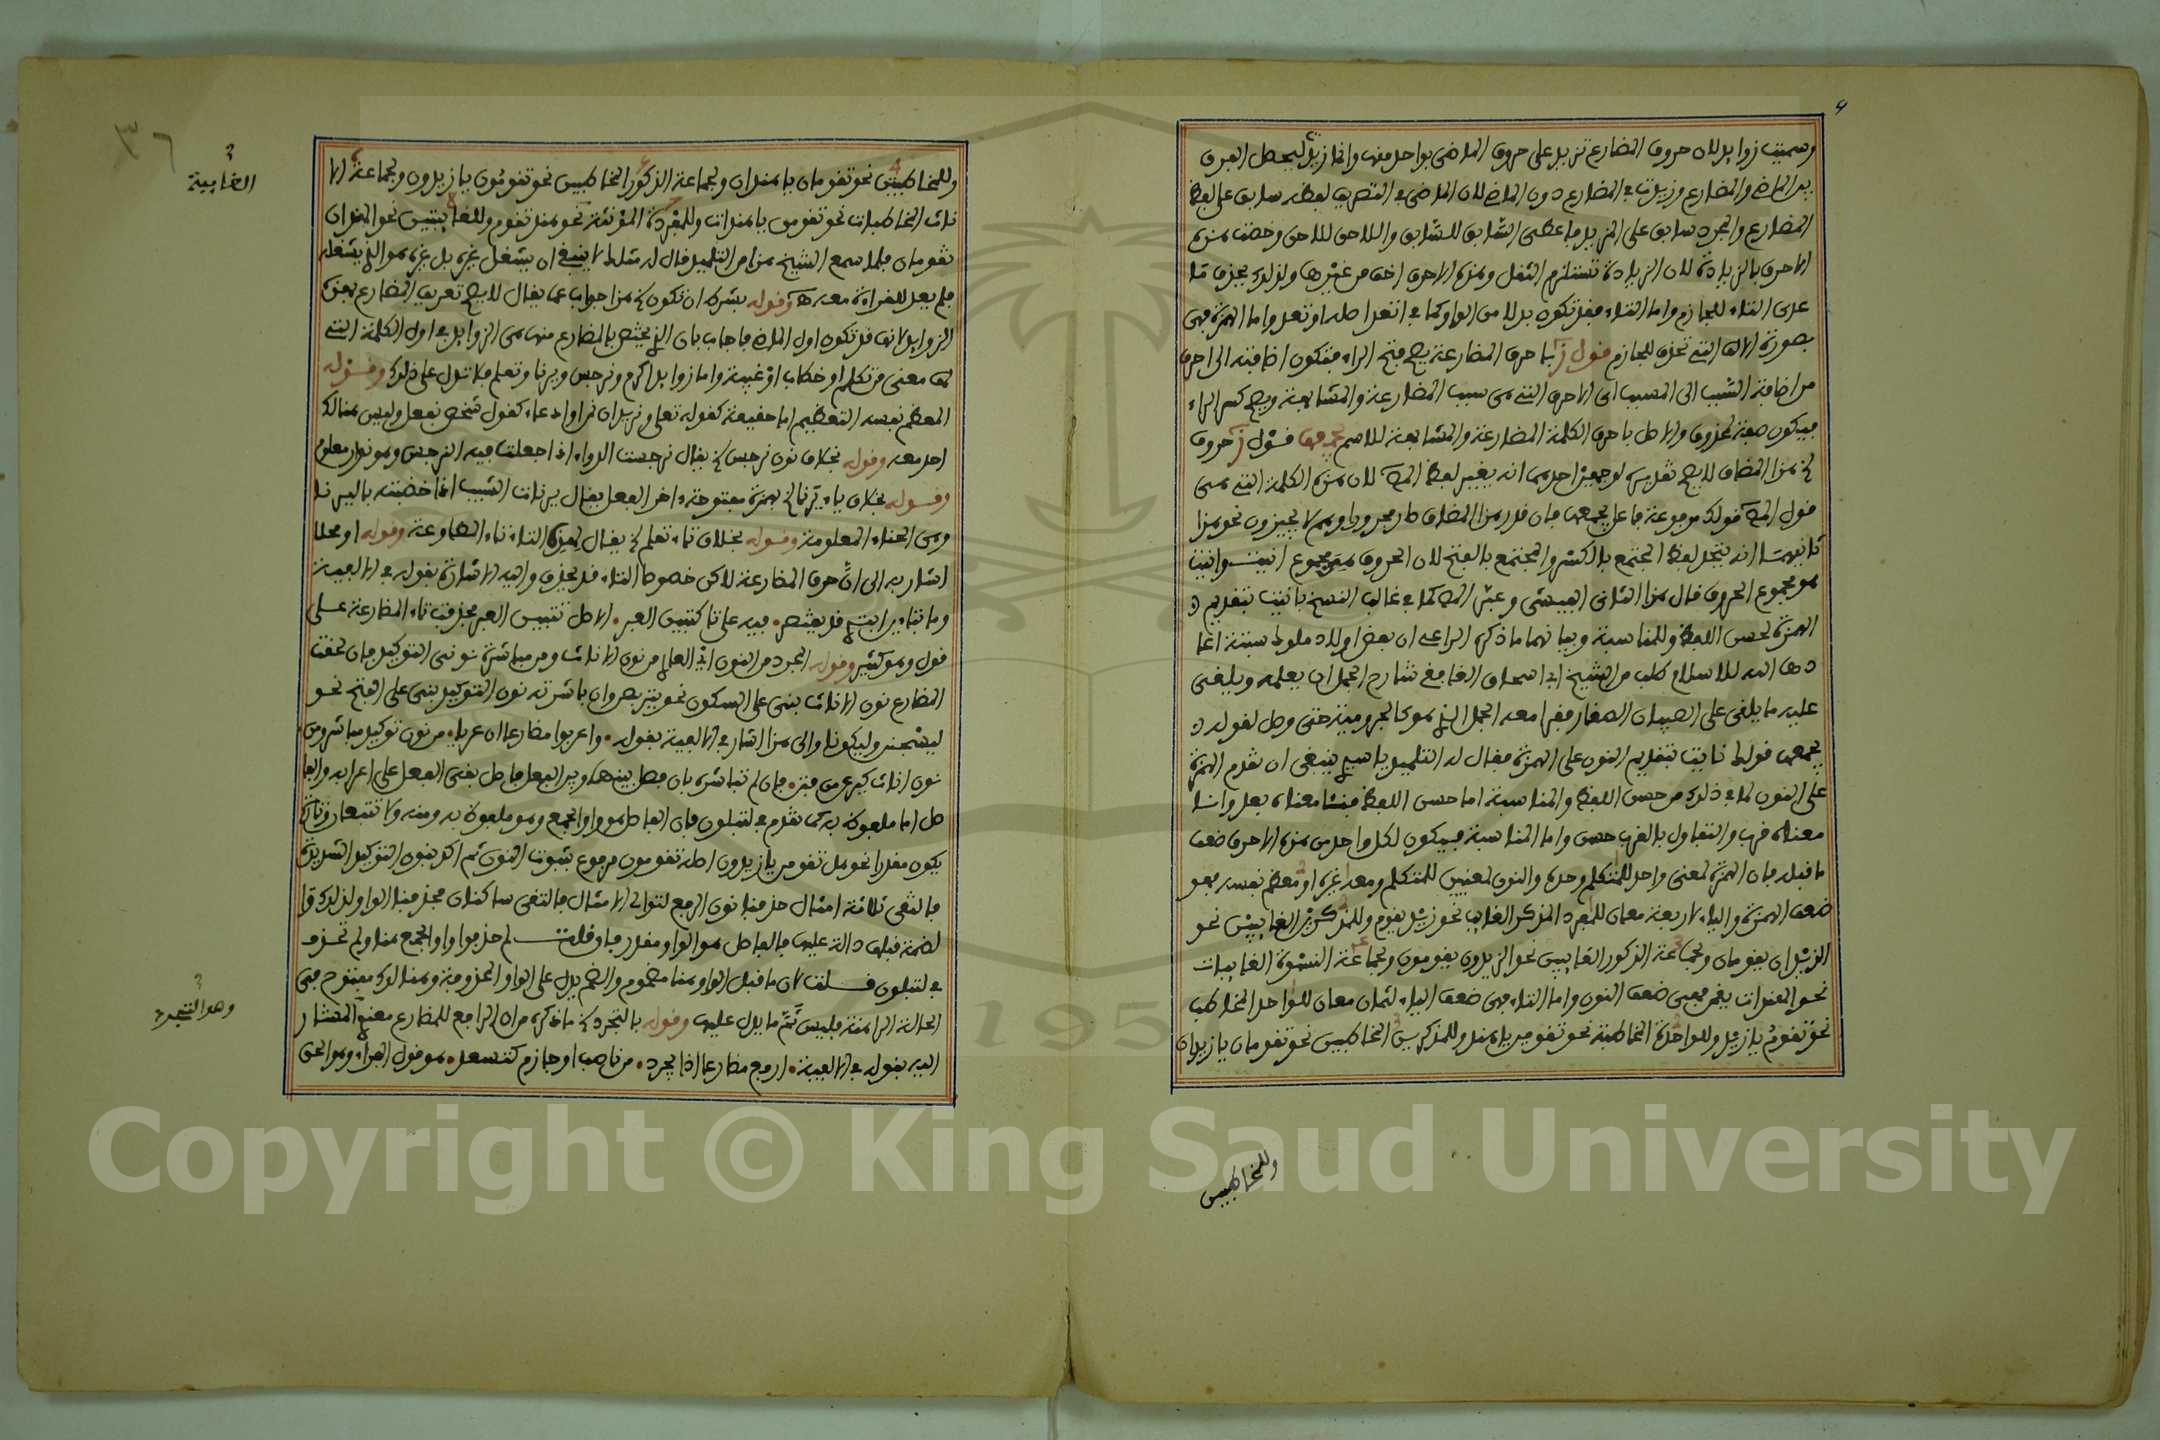 وسميت زوايد لان حروف المضارع تزيد على حروف الماضى بواحد منها وانما زيدت ليحصل الفرق
بين الماضى والمضارع وزيدت في المضارع دون الماضى لان الماضى في التصريف لفظه سابق على لفظ
المضارع والمجرد سابق على المزيد فاعطى السابق للسابق واللاحق لللاحق وخصت هذه
الاحرف بالزيادة لان الزيادة تستلزم الثقل وهذه الاحرف اخف من غيرها ولذلك
عدى التاء للجازم واما التاء فقد تكون بدلا من الواو كما في اتعد اصله اوتعد واما الهمزة فهى
بصورة الالف التى تحذف للجازم قول ز با حرف المضارعة يصح فتح الراء فتكون اضافته الى احرف
من اضافة السبب الى المسبب اى الاحرف التى هى سبب المضارعة والمشابهة ويصح كسر الراء
فيكون صفة لمحذوف والاصل باحرف الكلمة المضارعة والمشابهة للاسم يجمعها قول ز حروف
هذا المضاف لا يصح تقديره لوجهين احدهما انه يغير لفظ المص لان هذه الكلمة التى هى
قول المص قولك مرفوعة فاعل يجمعها فان قدر هذا المضاف صار مجرورا وهم لا يجيزون نحو هذا
ثانيهما انه يتحد لفظ المجتمع بالكسر والمجتمع بالفتح لان الحروف هى مجموع انيت وانيت
هو مجموع الحروف قال هذا الثانى الفيشى وعبر المص كما في غالب النسخ بانيت بتقديم
الهمزة لحسن اللفظ وللمناسبة وبيانهما ما ذكره الراعى ان بعض اولاد ملوك سبتة اعا
دها الله للاسلام طلب من الشيخ ابى اسحاق الغافقى شارح الجمل ان يعلمه ويلقى
عليه ما يلقى على الصبيان الصغار فقرا معه الجمل الذى هو كالجرومية حتى وصل لقوله
يجمعها قولك نايت بتقديم النون على الهمزة فقال له التلميذ ياسيدى ينبغى ان تقدم الهمزة
على النون لما في ذلك من حسن اللفظ والمناسبة اما حسن اللفظ فنئا معناه بعد وانا
معناه قرب والتفاول بالقرب حسن واما المناسبة فيكون لكل واحد من هذه الاحرف ضعف
ما قبله فان الهمزة لمعنى واحد للمتكلم وحده والنون لمعنيين للمتكلم ومعه غيره او معظم نفسه فهو
ضعف الهمزة والياء لاربعة معان للمفرد المذكر الغايب نحو زيد يقوم وللمذكرين الغايبين نحو
الزيدان يقومان ولجماعة الذكور الغايبين نحو الزيدون يقومون ولجماعة النسوة الغايبات
نحو الهندات يقمن فهى ضعف النون واما التاء فهى ضعف الياء لثمان معان للواحد المخاطب
نحو تقوم يا زيد وللواحدة المخاطبة نحو تقومين يا هند وللمذكرين المخاطبين نحو تقومان يا زيدان
وللمخاطبين
٣٦
وللمخاطبتين نحو تقومان يا هندان ولجماعة الذكور المخاطبين نحو تقومون يا زيدون ولجماعة الا
ناث المخاطبات نحو تقومن يا هندات وللمفردة المؤنثة نحو هند تقوم وللغايبتين نحو الهندان
الغايبة
تقومان فلما سمع الشيخ هذا من التلميذ قال له مثلك لا ينبغى ان يشتغل بل غيره هو الذى يشتغل
فلم يعد للقراءة معه وقوله بشرط ان تكون هذا جواب عما يقال لا يصح تعريف المضارع بهذه
الزوايد لانها قد تكون اول الماضى فاجاب بان الذى يختص بالمضارع منها هى الزوايد في اول الكلمة التى
لها معنى من تكلم او خطاب او غيبة واما زوايد اكرم ونرجس ويرنا وتعلم فلا تدل على ذلك وقوله
المعظم نفسه التعظيم اما حقيقة كقوله تعالى ونريد ان نمن او ادعاء كقول شخص نفعل وليس هنالك
احد معه وقوله بخلاف نون نرجس يقال نرجست الدواء اذا جعلت فيه النرجس وهو نوار معلوم
وقوله بخلاف ياء يرنا بهمزة مفتوحة اخر الفعل يقال يرنات الشيب اذا خضبته باليرنا
وهى الحناء المعلومة وقوله بخلاف تاء تعلم يقال لهذه التاء تاء المطاوعة وقوله او محلا
اشار به الى ان حرف المضارعة للاكن خصوص التاء قد يحذف واليه الاشارة بقوله في الالفية
وما بتاءين ابتدى قد يقتصر فيه على تا كتبين العبر الاصل تتبين العبر فحذفت تاء المضارعة على
قول وهو كثير وقوله المجرد من النون اى الخالى من نون الاناث ومن مباشرة نونى التوكيد فان لحقت
المضارع نون الاناث بنى على السكون نحو يتربصن وان باشرته نون التوكيد بنى على الفتح نحو
ليسجنن وليكونا والى هذا اشار في الالفية بقوله واعربوا مضارعا ان عريا من نون توكيد مباشر ومن
نون اناث كيرعن من فتن فان لم تباشره بان فصل بينها وبين الفعل فاصل بقى الفعل على اعرابه والفا
صل اما ملفوظ به كما تقدم في لتبلون فان الفاصل هو واو الجمع وهو ملفوظ به ومنه ولا تتبعان وتارة
يكون مقدرا نحو هل تقومن يا زيدون اصله تقومون مرفوع بثبوت النون ثم اكد بنون التوكيد الشديدة
فالتقى ثلاثة امثال حذفنا نون الرفع لتوالى الامثال فالتقى ساكنان فحذفنا الواو
لضمة قبلها دالة عليها فالفاصل هو الواو مقدر فان قلت لم حذفوا واو الجمع هنا ولم تحذف
في لتبلون قلت لان ما قبل الواو هنا مضموم والضم يدل على الواو المحذوفة وهنالك مفتوح ففى
الحالة الراهنة فليس ثم ما يدل عليها وقوله بالتجرد ما ذكره من ان الرافع للمضارع معنوى المشار
وهو التجرد
اليه بقوله في الالفية ارفع مضارعا اذا يجرد من ناصب او جازم كتسعد هو قول الفراء وهو الحق